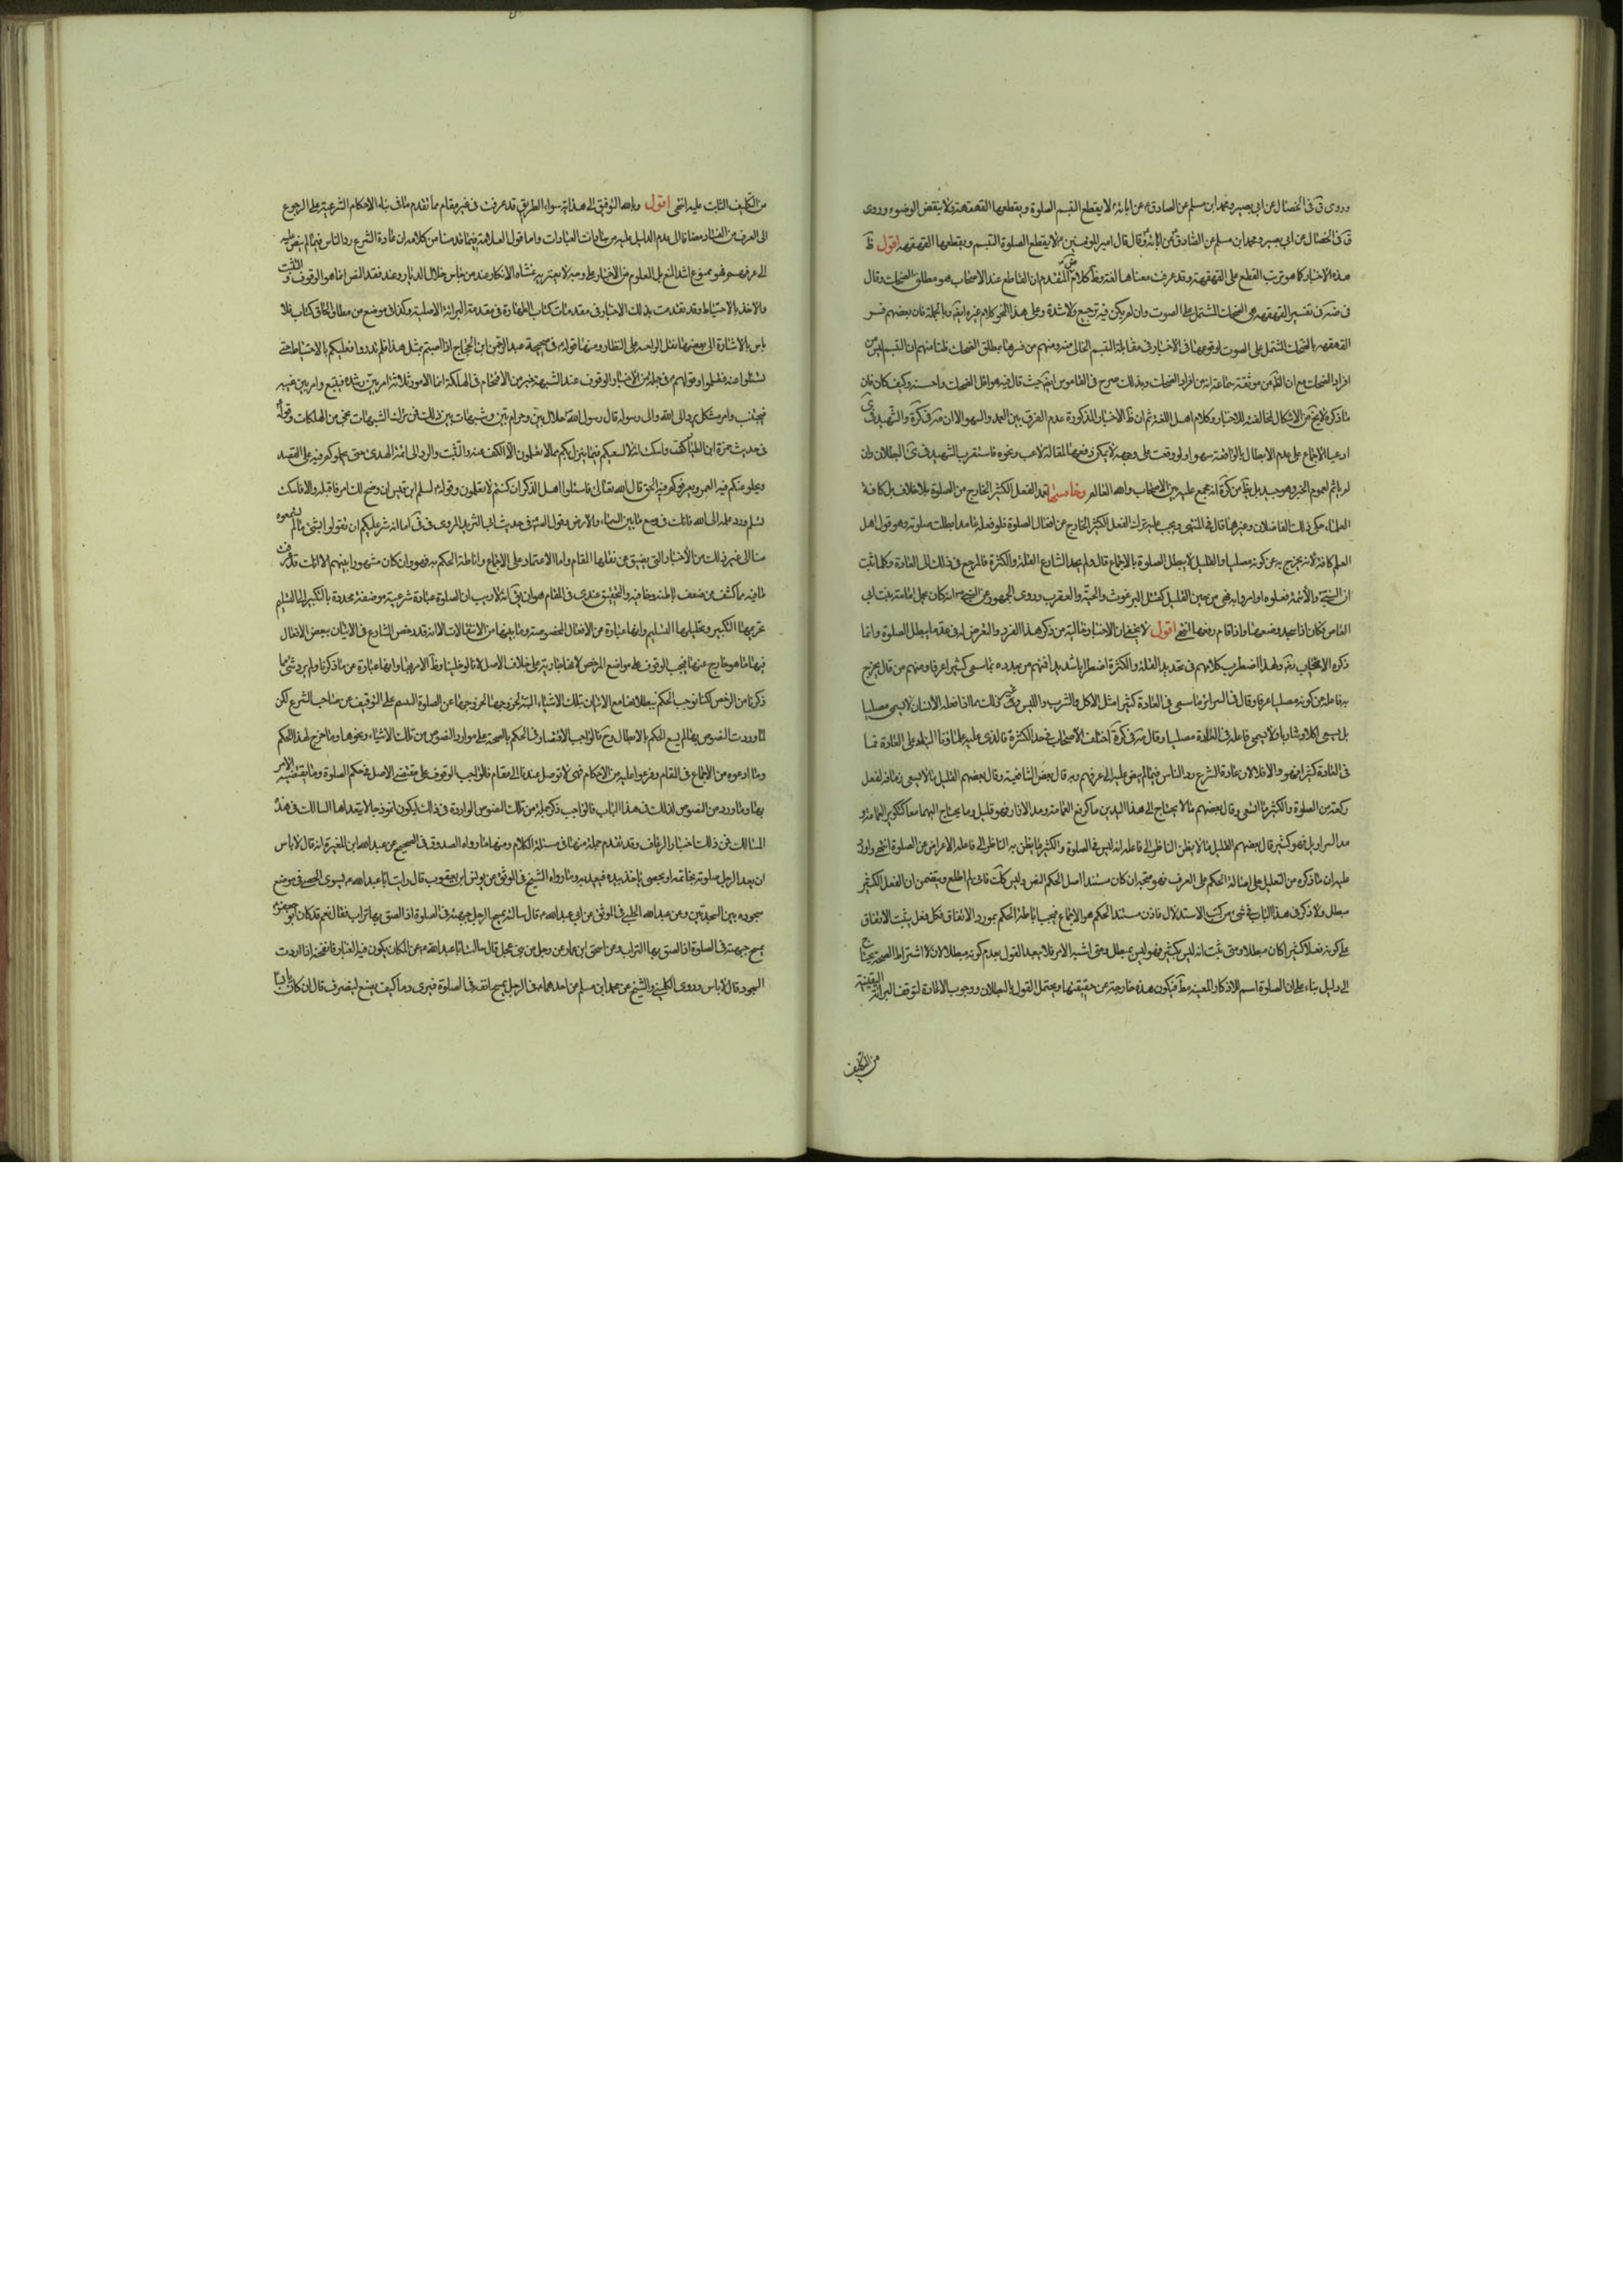 وروى ق في الخصال عن ابي بصير ومحمد ابن مسلم عن الصادق عن ابائه لا يقطع التبسم الصلوة ويقطعها القهقهة ولا ينقض الوضوء وروى
ق في الخصال عن ابي بصير ومحمد ابن مسلم عن الصادق عن ابائه قال قال امير المومنين لا يقطع الصلوة التبسم ويقطعها القهقهه اقول ظ
هذه الاخبار كما هو ترتب القطع على القهقهة وقد عرفت معناها لغة وظ كلام المتقدم ان القاطع عند الاصحاب هو مطلق الضحك وقال
في تفسير القهقهه هي الضحك المشتمل على الصوت وان لم يكن فيه ترجيع ولا شدة وعلى هذا النحو كلام غيره ايضا وبالجملة فان بعضهم فسر
القهقهه بالضحك المشتمل على الصوت لوقوعها في الاخبار في مقابلة التبسم الخالي منه ومنهم من فسرها بمطلق الضحك ظنا منهم ان التبسم ليس من
افراد الضحك مع ان الظ من موثقة سماعة انه من افراد الضحك وبذلك صرح في القاموس ايضا حيث قال فيه هو اقل الضحك واحسنه وكيف كان فان
ما ذكره لا يخ من الاشكال لمخالفته للاخبار وكلام اهل اللغة ثم ان ظ الاخبار المذكورة عدم الفرق بين العمد والسهو الا ان في كرة والشهيد في
ادعيا الاجماع على عدم الابطال بالواقعة سهوا ولو وقعت على وجه لا يمكن دفعها لمقالة لاعب ونحوه فاستقرب الشهيد في البطلان وان
لم ياثم لعموم الخبر وهو جيد بل من كرة انه مجمع عليه بين الاصحاب والله العالم وخامسها تعمد الفعل الكثير الخارج من الصلوة بلا خلاف بل كافة
العلماء حكى ذلك الفاضلان وغيرهما قال في المنتهى ويجب عليه ترك الفعل الكثير الخارج عن افعال الصلوة فلو فعله عامدا بطلت صلوته وهو قول اهل
العلم كافة لانه يخرج به عن كونه مصليا والقليل لا يبطل الصلوة بالاجماع قال ولم يحد الشارع القلة والكثرة فالمرجع في ذلك الى العادة وكلما ثبت
ان النبي والائمة فعلوه او امروا به فهو من حيز القليل كقتل البرغوث والحية والعقرب وروى الجمهور عن النبي انه كان يحمل امامة بنت ابي
العاص وكان اذا سجد وضعها واذا قام رفعها انتهى اقول لا يخفى ان الاخبار خالية من ذكر هذا الفرد والتعرض له في عد ما يبطل الصلوة وانما
ذكره الاصحاب رض ولهذا اضطرب كلامهم في تحديد القلة والكثرة اضطرابا شديدا فمنهم من حدده بما سمى كثيرا عرفا ومنهم من قال يخرج
به فاعله من كونه مصليا عرفا وقال في السرائر ما سمي في العادة كثيرا مثل الاكل والشرب واللبس وغير ذلك مما اذا فعله الانسان لا يسمى مصليا
بل يسمى اكلا وشاربا ولا يسمى فاعله في العادة مصليا وقال في كرة اختلف الاصحاب في حد الكثرة فالذي عليه علماؤنا البناء على العادة فما
في العادة كثيرا فهو والا فلا لان عادة الشرع رد الناس فيما لم ينص عليه الى عرفهم وبه قال بعض الشافعية وقال بعضهم القليل ما لا يسع زمانه لفعل
ركعة من الصلوة والكثير ما يسع وقال بعضهم ما لا يحتاج الى هذا اليدين معا كرفع العمامة ومد الازار فهو قليل وما يحتاج اليهما معا كتكوير العمامة و
مد السراويل فهو كثير قال بعضهم القليل ما لا يظن الناظر الى فاعله انه ليس في الصلوة والكثير ما يظن به الناظر الى فاعله الاعراض عن الصلوة انتهى واورد
عليه ان ما ذكره من التعليل على احالة الحكم على العرف فهو متجه ان كان مستند اصل الحكم النص وليس كك فاني لم اطلع ويتضمن ان الفعل الكثير
مبطل ولا ذكر في هذا الباب في شئ من كتب الاستدلال فاذن مستند الحكم هو الاجماع فيجب اناطة الحكم بمورد الاتفاق فكل فعل يثبت الاتفاق
على كونه فعلا كثيرا كان مبطلا ومتى ثبت انه ليس بكثير فهو ليس بمبطل ومتى اشتبه الامر فلا يبعد القول بعدم كونه مبطلا لان اشتراط الصحة يحتاج
الى دليل بناء على ان الصلوة اسم للاركان المعينة مطلقا فيكون هذه خارجة عن حقيقتها ويحتمل القول بالبطلان ووجوب الاعادة لتوقف البرائة اليقينية
من التكليف
من التكليف الثابت عليه انتهى اقول وبالله التوفيق الى هداية سواء الطريق قد عرفت في غير مقام مما تقدم ما في بناء الاحكام الشرعية على الرجوع
الى العرف من الفساد مضافا الى عدم الدليل عليه من عادات العبادات واما قول العلامة فيما قدمنا من كلامه ان عادة الشرع رد الناس فيما لم ينص عليه
الى عرفهم فهو ممنوع اشد المنع بل المعلوم من الاخبار على وجه لا يعتريه غشاوة الانكار عند من جاس خلال الديار وعند فقد النص انما هو الوقوف والتثبت
والاخذ بالاحتياط وقد تقدمت بذلك الاخبار في مقدمات كتاب الطهارة في مقدمة البرائة الاصلية وكذا في موضع من مطاوي الكتاب فلا
باس بالاشارة الى بعضها فنقل الواحد على النظار ومنها قوله في صحيحة عبد الرحمن ابن الحجاج اذا اصبتم بمثل هذا فلم تدروا فعليكم بالاحتياط حتى
تسئلوا عنه فتعلموا وقولهم في جملة من الاخبار الوقوف عند الشبهة خير من الاقتحام في الهلكة انما الامور ثلاثة امر بين رشده فيتبع وامر بين غيه
فيجتنب وامر مشكل يرد الى الله والى رسوله قال رسول الله حلال بين وحرام بين وشبهات بين ذلك فمن ترك الشبهات نجى من الهلكات وقوله
في حديث حمزة ابن الطيار كف واسكت انه لا يسعكم فيما ينزل بكم مما لا تعلمون الا الكف عنه والتثبت والرد الى ائمة الهدى حتى يحملوكم فيه على القصد
ويجلو عنكم فيه العمى ويعرفوكم فيه الحق قال الله تعالى فاسئلوا اهل الذكر ان كنتم لا تعلمون وقوله لسليم ابن قيس ان وضح لك امر فاقبله والا فاسكت
تسلم ورد علمه الى الله فانك في وسع ما بين السماء والارض وقول الصادق في حديث المروي في اما انه شر عليكم ان تقولوا بشئ ما لم تسمعوه
منا الى غير ذلك من الاخبار التي يضيق عن نقلها المقام واما الاعتماد على الاجماع واناطة الحكم به فهو وان كان مشهورا بينهم الا انك قد عرفت
ما فيه مما كشف عن ضعف باطنه وخافيه والتحقيق عندي في المقام هو ان يق انه لا ريب ان الصلوة عبادة شرعية موضعة محدودة بالتكبير الى التسليم
تحريمها التكبير وتحليلها التسليم وانها عبارة عن الافعال المخصوصة وما بينها من الانتقالات الا انه قد رخص الشارع في الاتيان ببعض الافعال
فيها مما هو خارج عنها فيجب الوقوف على مواضع الرخص لانها جارية على خلاف الاصل لانا لو خلينا وظ الامر بها وانها عبارة عن ما ذكرنا ولم يرد شئ مما
ذكرنا من الرخص لكنا نوجب الحكم ببطلانها مع الاتيان بتلك الاشياء البتة لخروجها عن الصلوة المبنية على التوقيف عن صاحب الشرع لكن
لما وردت النصوص بها لم يسع الحكم بالابطال وح فالواجب الاقتصار في الحكم بالصحة على موارد النصوص من تلك الاشياء ونحوها وما خرج لهذا الحكم
وما ادعوه من الاجماع في المقام وفرعوا عليه من الاحكام فهي لا توصل عندنا الى مقام فالواجب الوقوف على مقتضى الاصل في حكم الصلوة وما يقتضيه الامر
بها وما ورد من النصوص كذلك في هذا الباب فالواجب ذكر جملة من تلك النصوص الواردة في ذلك ليكون انموذجا لا يتعداها السالك في هذه
المسالك فمن ذلك اخبار الرعاف وقد تقدم جملة منها في مسئلة الكلام ومنها ما رواه الصدوق في الصحيح عن عبد الله ابن المغيرة انه قال لا باس
ان يعد الرجل صلوته بخاتمه او بحصى ياخذ بيده فيعد به وما رواه الشيخ في الموثق عن يونس ابن يعقوب قال رايت ابا عبد الله يسوى الحصى في موضع
سجوده بين السجدتين وعن عبد الله الحلبي في الموثق عن ابي عبد الله قال سالته يمسح الرجل جبهته في الصلوة اذا الصق بها تراب فقال نعم قد كان ابو جعفر
يمسح جبهته في الصلوة اذا الصق بها التراب وعن اسحق ابن عمار عن رجل من بني عجل قال سالت ابا عبد الله عن المكان يكون فيه الغبار فانفخه اذا اردت
السجود قال لا باس وروى الكليني والشيخ عن محمد ابن مسلم عن احدهما في الرجل يمسح انفه في الصلوة فيرى دما كيف يصنع اينصرف قال ان كان يابسا